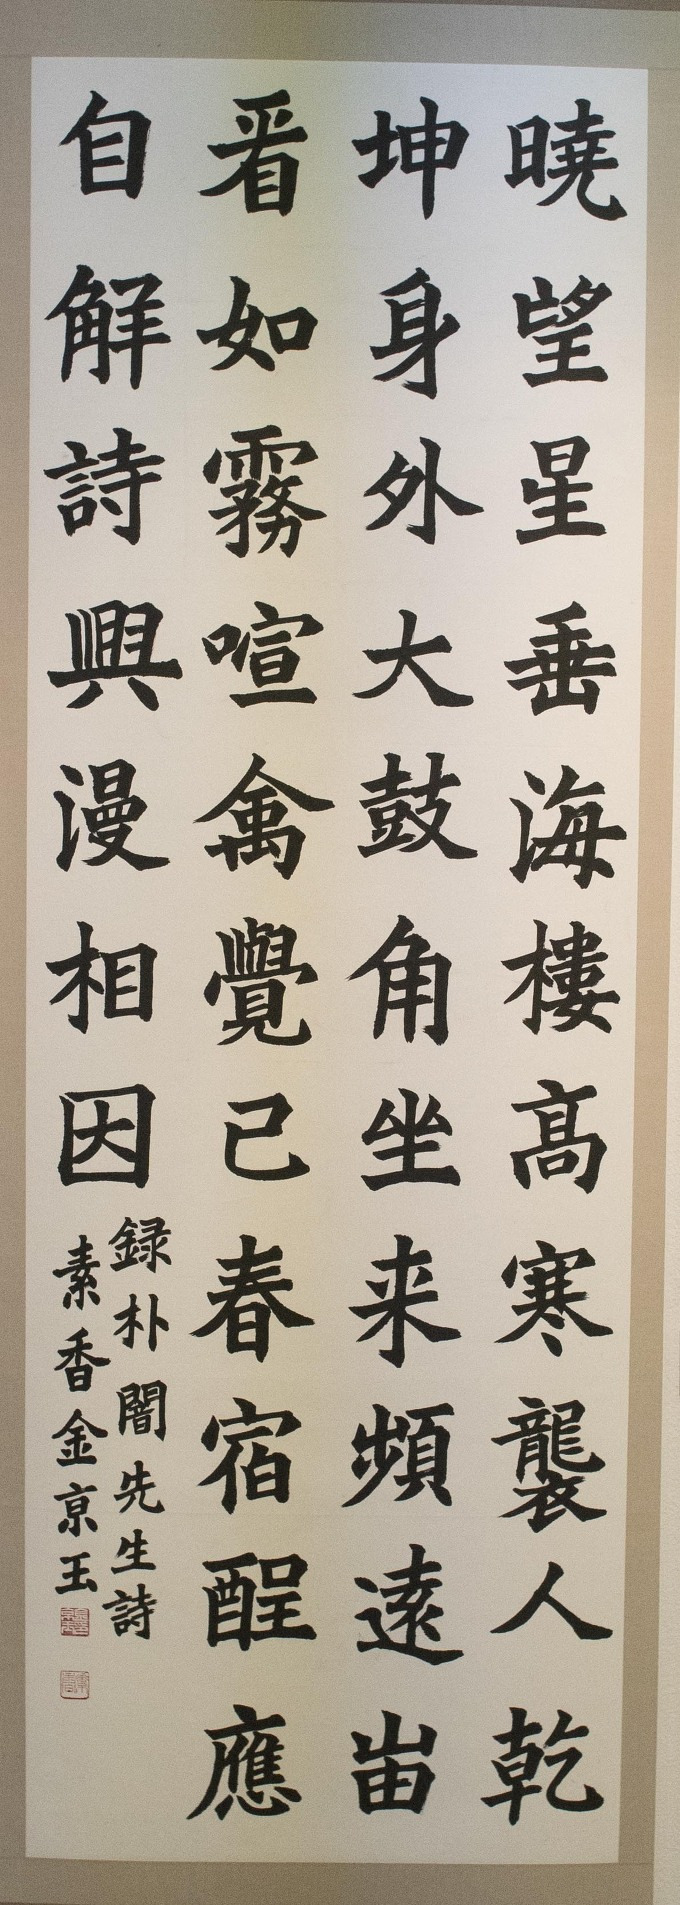 曉望星垂海樓高寒襲人乾
坤身外大鼓角坐来頻遠峀
㸔如霧喧禽覺已春宿酲應
自解詩興漫相因
録朴闇先生詩
素香金京玉